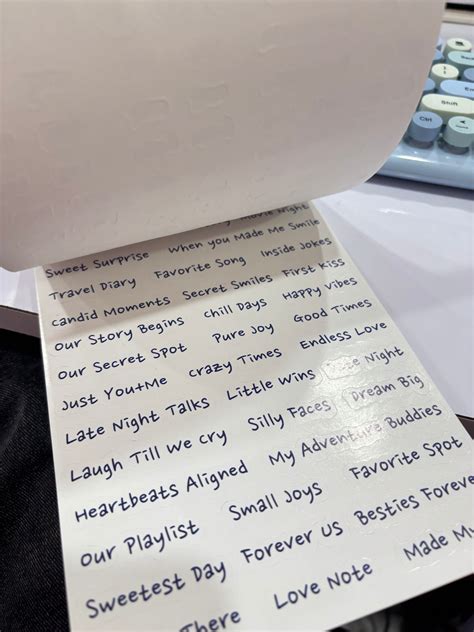 Movie Night
Sweet Surprise When you Made Me Smile
Travel Diary Favorite Song Inside Jokes
Candid Moments Secret Smiles First Kiss
Our Story Begins Chill Days Happy Vibes
Our Secret Spot Pure Joy Good Times
Just You+Me Crazy Times Endless Love
Late Night Talks Little Wins Date Night
Laugh Till We Cry Silly Faces Dream Big
Heartbeats Aligned My Adventure Buddies
Our Playlist Small Joys Favorite Spot
Sweetest Day Forever Us Besties Forever
There Love Note Made My
Shift
Ctrl